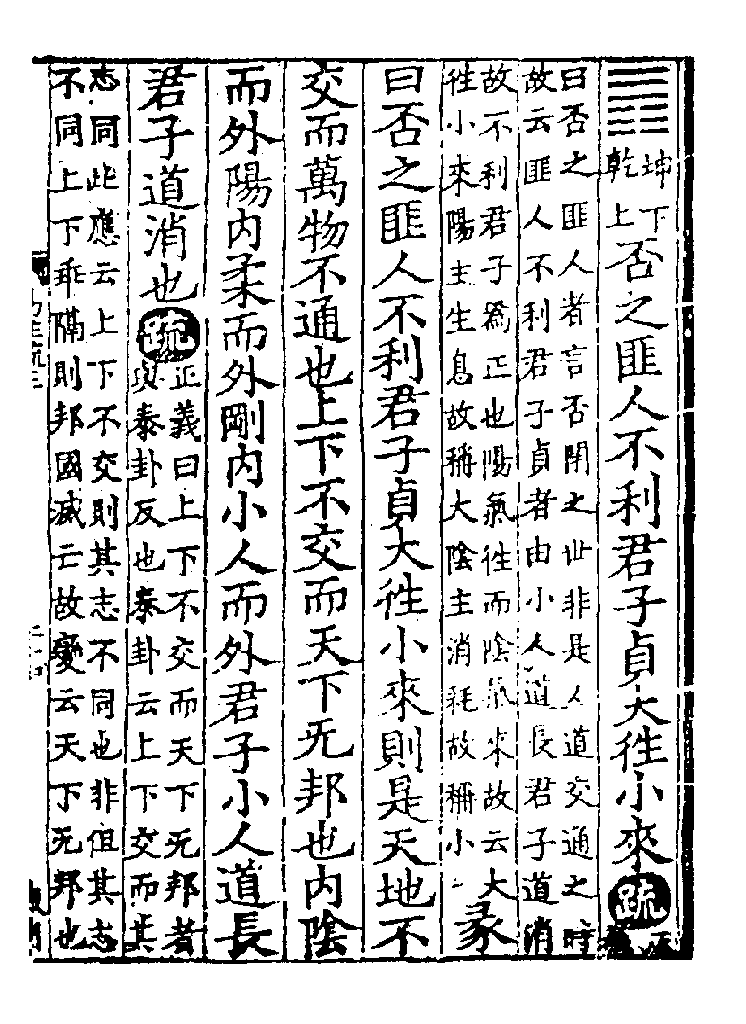 ䷋坤下乾上否之匪人不利君子貞大往小來疏正義
曰否之匪人者言否閉之世非是人道交通之時
故云匪人不利君子貞者由小人道長君子道消
故不利君子爲正也陽氣往而陰氣來故云大
往小來陽主生息故稱大陰主消耗故稱小彖
曰否之匪人不利君子貞大往小來則是天地不
交而萬物不通也上下不交而天下无邦也内陰
而外陽内柔而外剛内小人而外君子小人道長
君子道消也疏正義曰上下不交而天下无邦者
與泰卦反也泰卦云上下交而其
志同此應云上下不交則其志不同也非但其志
不同上下乖隔則邦國滅亡故變云天下无邦也